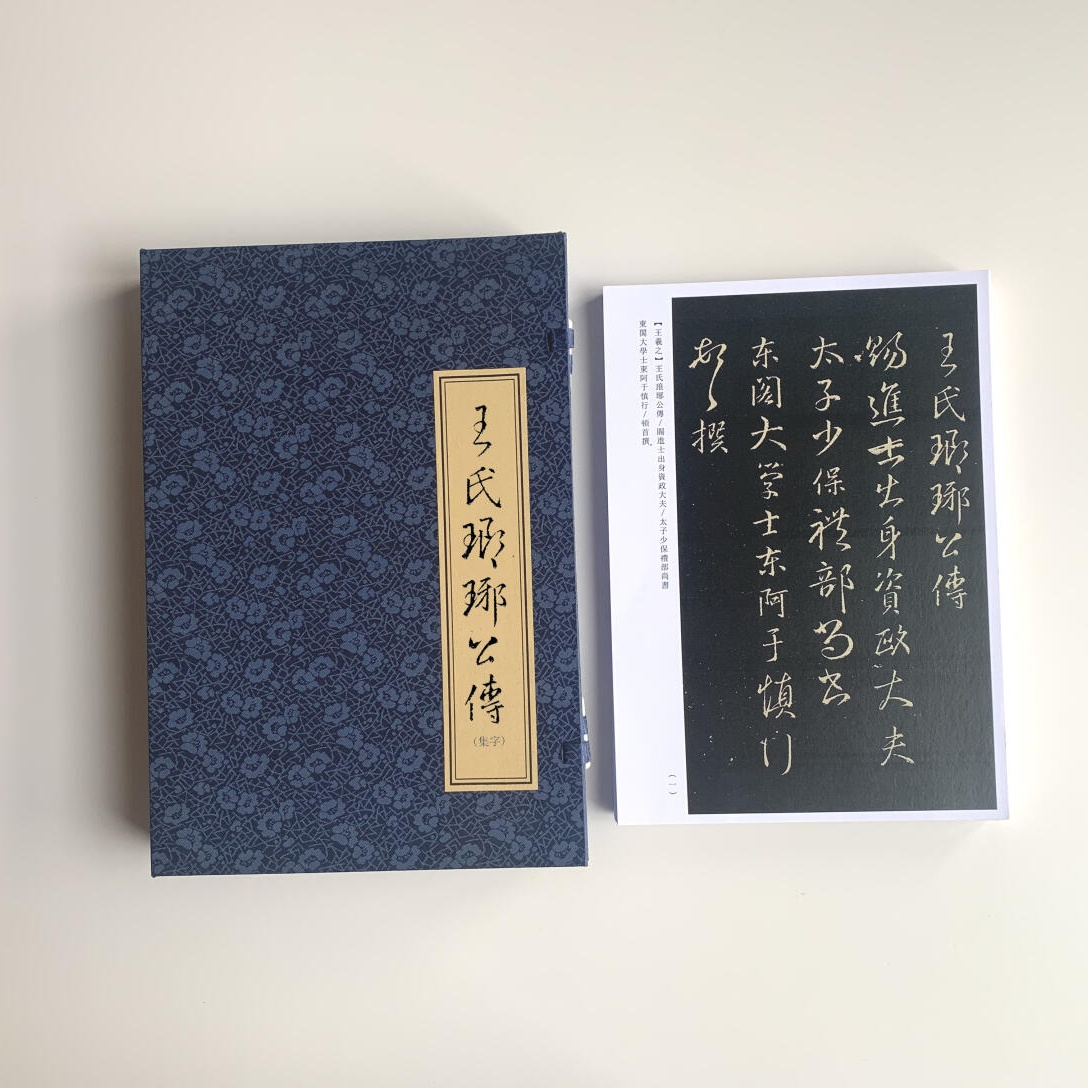 王氏瑯琊公傳
(集字)
王氏瑯琊公傳
賜進士出身資政大夫
太子少保禮部尚書
东閣大学士东阿于慎行
頓首撰
【王羲之】王氏琅琊公傳/賜進士出身資政大夫/太子少保禮部尚書
東閣大學士東阿于慎行/頓首撰。
(一)